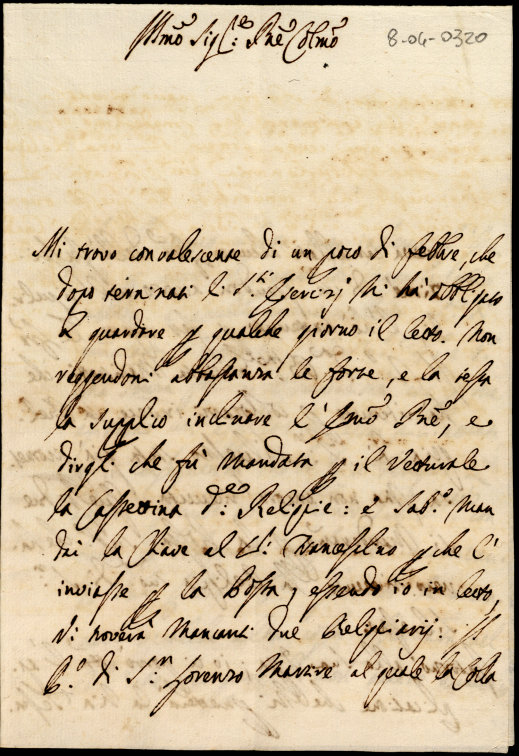 Illmo Sigre: Pne Colmo
8-04-0320
Mi trovo convalescente di un poco di febbre, che
dopo terminati li Sti Esercizj mi hà obbligato
a guardare p qualche giorno il letto. Non
reggendomi abbastanza le forze, e la testa
la supplico inclinare l'Emo Pne, e
dirgli che fù mandata p il Vetturale
la Cassettina de: Reliquie: e Sabo: man
dai la Chiave al Sr: Vancesplino p che l'
inviasse p la Posta, essendo io in letto,
Vi troverà mancanti due Reliquiarij. Il
Po: di Sn: Lorenzo Martire al quale la Colla